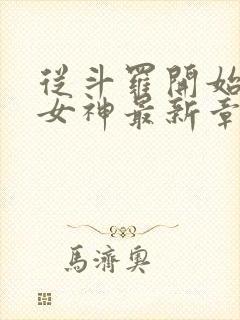 從斗羅開始
女神最新章
馬濟奧